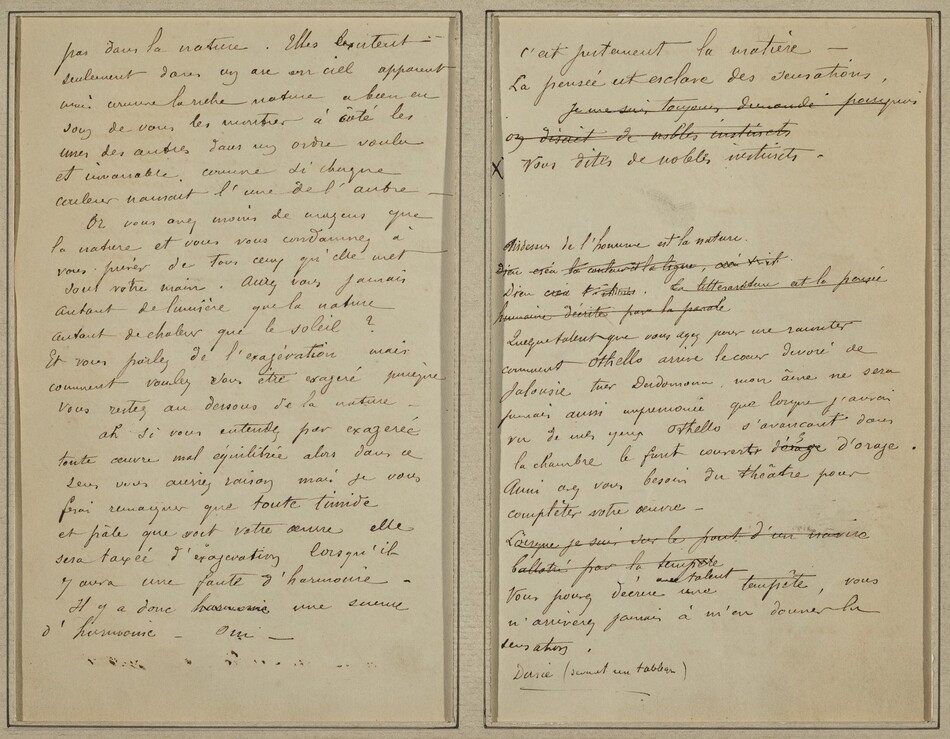 pas dans la nature. Elles existent
seulement dans un arc en ciel apparent
mais comme la riche nature a bien eu
soin de vous les montrer à côté les
unes des autres dans un ordre voulu
et invariable, comme si chaque
couleur naissait l'une de l'autre -
Or vous avez moins de moyens que
la nature et vous vous condamnez à
vous priver de tous ceux qu'elle met
sous votre main. Aurez vous jamais
autant de lumière que la nature
autant de chaleur que le soleil ?
Et vous parlez de l'exagération mais
comment voulez vous être exagéré puisque
vous restez au dessous de la nature -
ah si vous entendez par exagérée
toute œuvre mal équilibrée alors dans ce
sens vous auriez raison mais je vous
ferai remarquer que toute timide
et pâle que soit votre œuvre elle
sera taxée d'exagération lorsqu'il
y aura une faute d'harmonie -
Il y a donc harmonie une science
d'harmonie - Oui -
c'est justement la matière -
La pensée est esclave des sensations.
Je me suis toujours demandé pourquoi
on disait de nobles instincts
X Vous dites de nobles instincts -
de l'homme est la nature.
Dieu créa la couleur et la ligne,
Dieu créa . La littérature est la pensée
humaine décrite par la parole
Quelque talent que vous ayez pour me raconter
comment Othello arrive le cœur dévoré de
jalousie tuer Desdemona, mon âme ne sera
jamais aussi impressionée que lorsque j'aurai
vu de mes yeux Othello s'avançant dans
la chambre le front couvert d'orage.
Aussi avez vous besoin du théâtre pour
compléter votre œuvre -
Lorsque je suis sur le pont d'un navire
ballotté par la tempête
Vous pouvez décrire avec talent une tempête, vous
n'arriverez jamais à m'en donner la
sensation.
(devant un tableau)